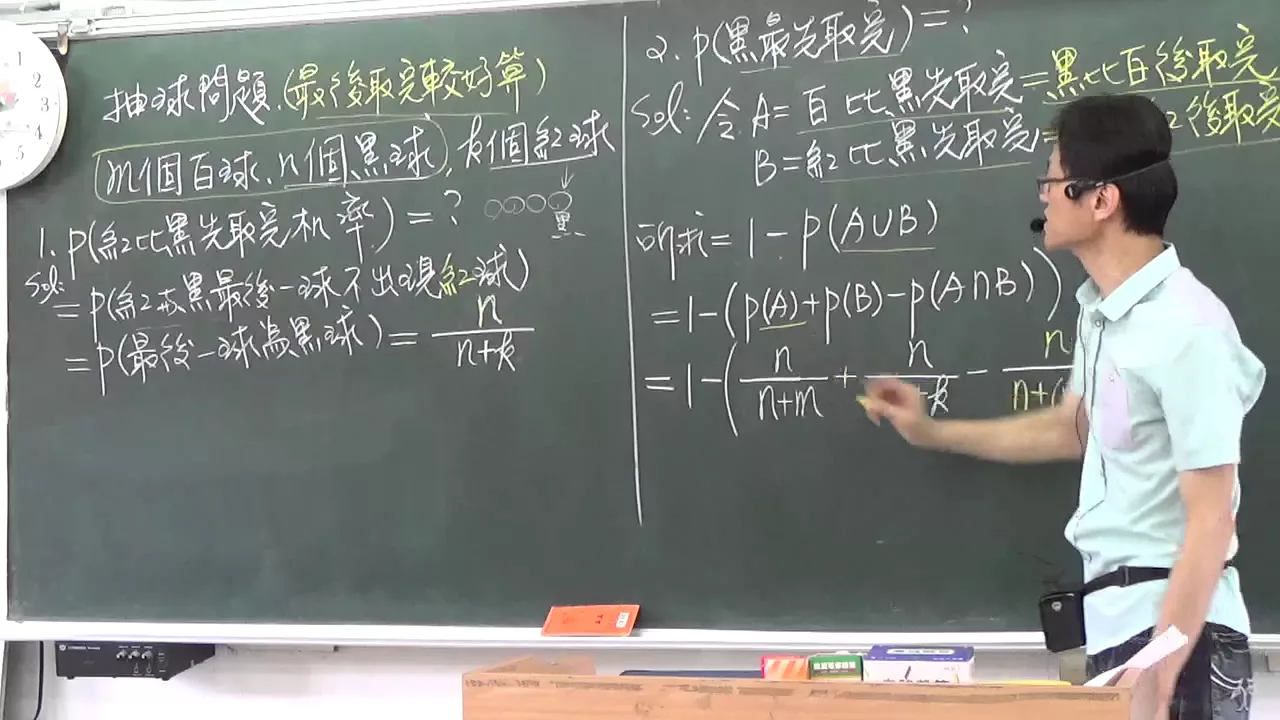 抽球問題(最後取完較好算)
m個百球、n個黑球, k個紅球
黑
1. P(紅比黑先取完机率) = ?
Sol:
= P(紅或黑最後一球不出現紅球)
= P(最後一球為黑球) = n/(n+k)
2. P(黑最先取完) = ?
Sol: 令 A = 百比黑先取完 = 黑比百後取完
B = 紅比黑先取完 = 後取完
所求 = 1 - P(A∪B)
= 1 - (P(A) + P(B) - P(A∩B))
= 1 - (n/(n+m) + n/ +k - n/n+(
1
2
3
4
5